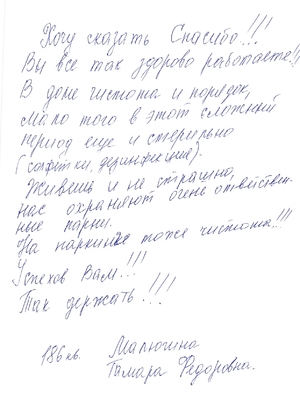 Хочу сказать Спасибо!!!
Вы все так здорово работаете!!
В доме чистота и порядок,
мало того в этот сложный
период еще и стерильно
(салфетки, дезинфекция).
Живешь и не страшно,
нас охраняют очень ответствен-
ные парни.
На паркинге тоже чистота!!!
Успехов Вам!!!
Так держать!!!
186 кв. Малюгина
Тамара Федоровна.